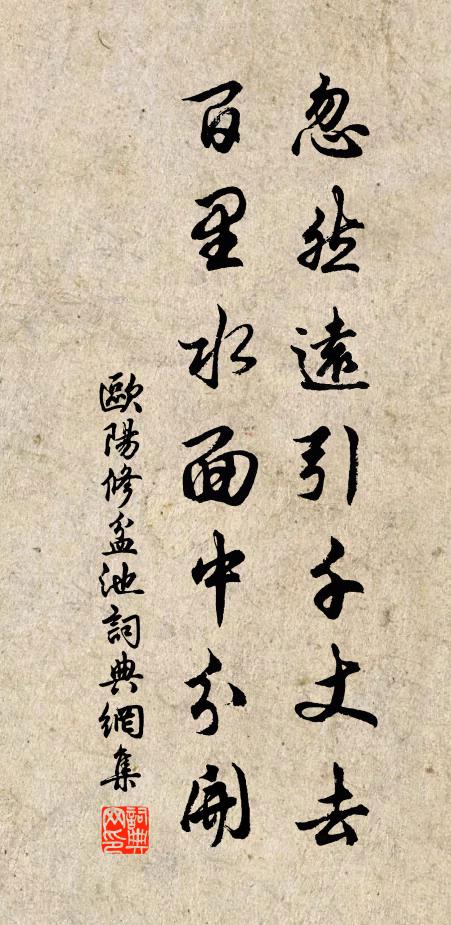 忽然遠引千丈去
百里水面中分開
歐陽修盆池詞典網集
詞典網印